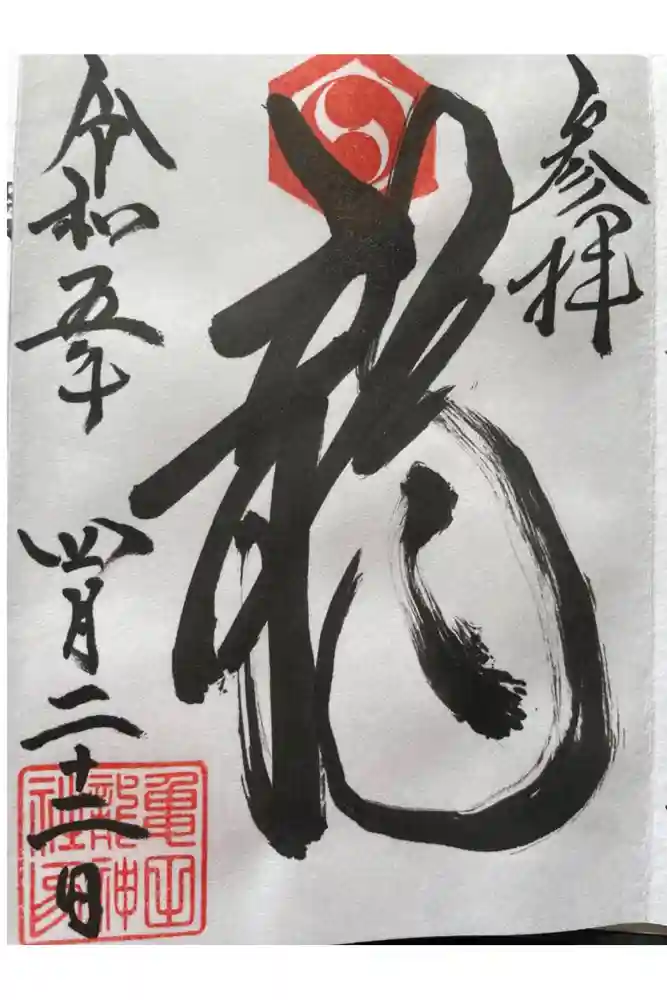 参拝
龍
令和五年
四月二十二日
亀山
龍神
社印